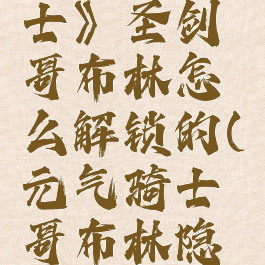 士》圣剑
哥布林怎
么解锁的(
元气骑士
哥布林隐